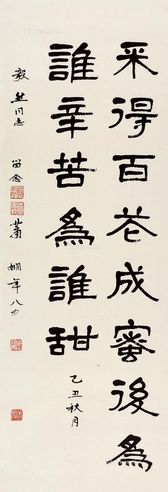 采得百花成蜜後為
誰辛苦為誰甜
乙丑秋月
毅然同志 留念 蕭嫻年八四